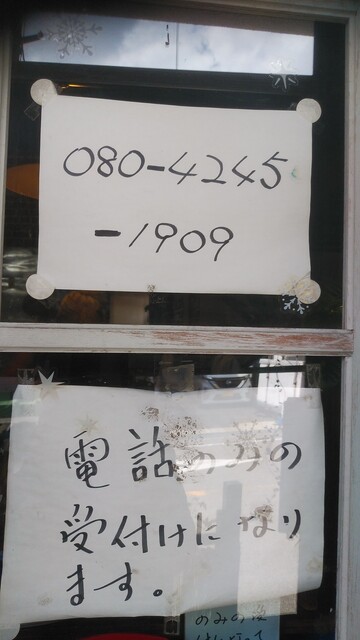 080-4245
-1909
電話のみの
受付けになり
ます。